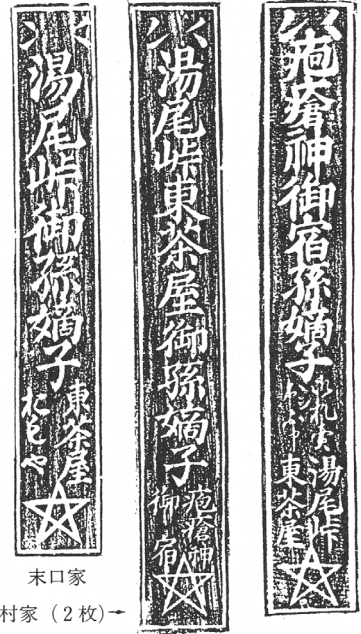 疱瘡神御宿孫嫡子
湯尾峠
東茶屋
湯尾峠東茶屋御孫嫡子
疱瘡神
御宿
湯尾峠御孫嫡子
東茶屋
おもや
末口家
村家(2枚)→